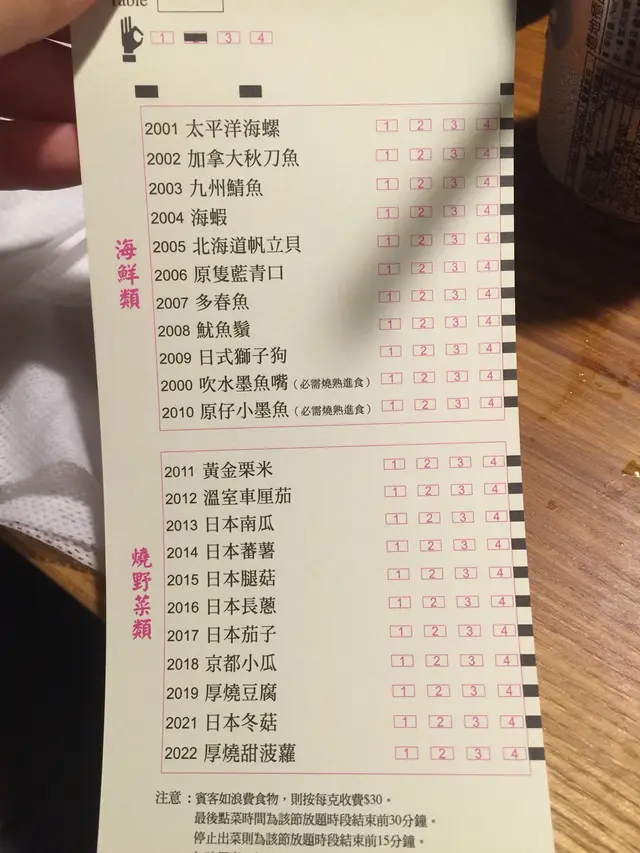 Table
1 3 4
2001 太平洋海螺 1 2 3 4
2002 加拿大秋刀魚 1 2 3 4
2003 九州鯖魚 1 2 3 4
2004 海蝦 1 2 3 4
2005 北海道帆立貝 1 2 3 4
2006 原隻藍青口 1 2 3 4
2007 多春魚 1 2 3 4
2008 魷魚鬚 1 2 3 4
2009 日式獅子狗 1 2 3 4
2000 吹水墨魚嘴（必需燒熟進食） 1 2 3 4
2010 原仔小墨魚（必需燒熟進食） 1 2 3 4
海鮮類
2011 黃金粟米 1 2 3 4
2012 溫室車厘茄 1 2 3 4
2013 日本南瓜 1 2 3 4
2014 日本蕃薯 1 2 3 4
2015 日本腿菇 1 2 3 4
2016 日本長蔥 1 2 3 4
2017 日本茄子 1 2 3 4
2018 京都小瓜 1 2 3 4
2019 厚燒豆腐 1 2 3 4
2021 日本冬菇 1 2 3 4
2022 厚燒甜菠蘿 1 2 3 4
燒野菜類
注意：賓客如浪費食物，則按每克收費$30。
最後點菜時間為該節放題時段結束前30分鐘。
停止出菜則為該節放題時段結束前15分鐘。